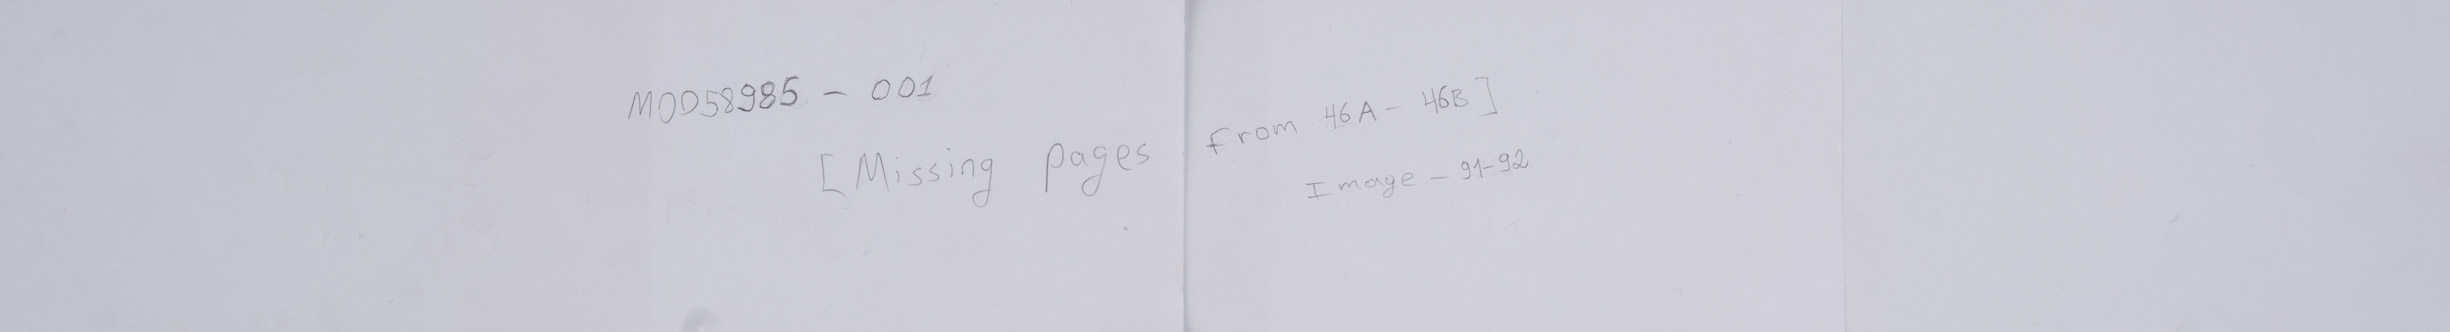 MOD58985 - 001
[Missing pages from 46A - 46B]
Image - 91-92